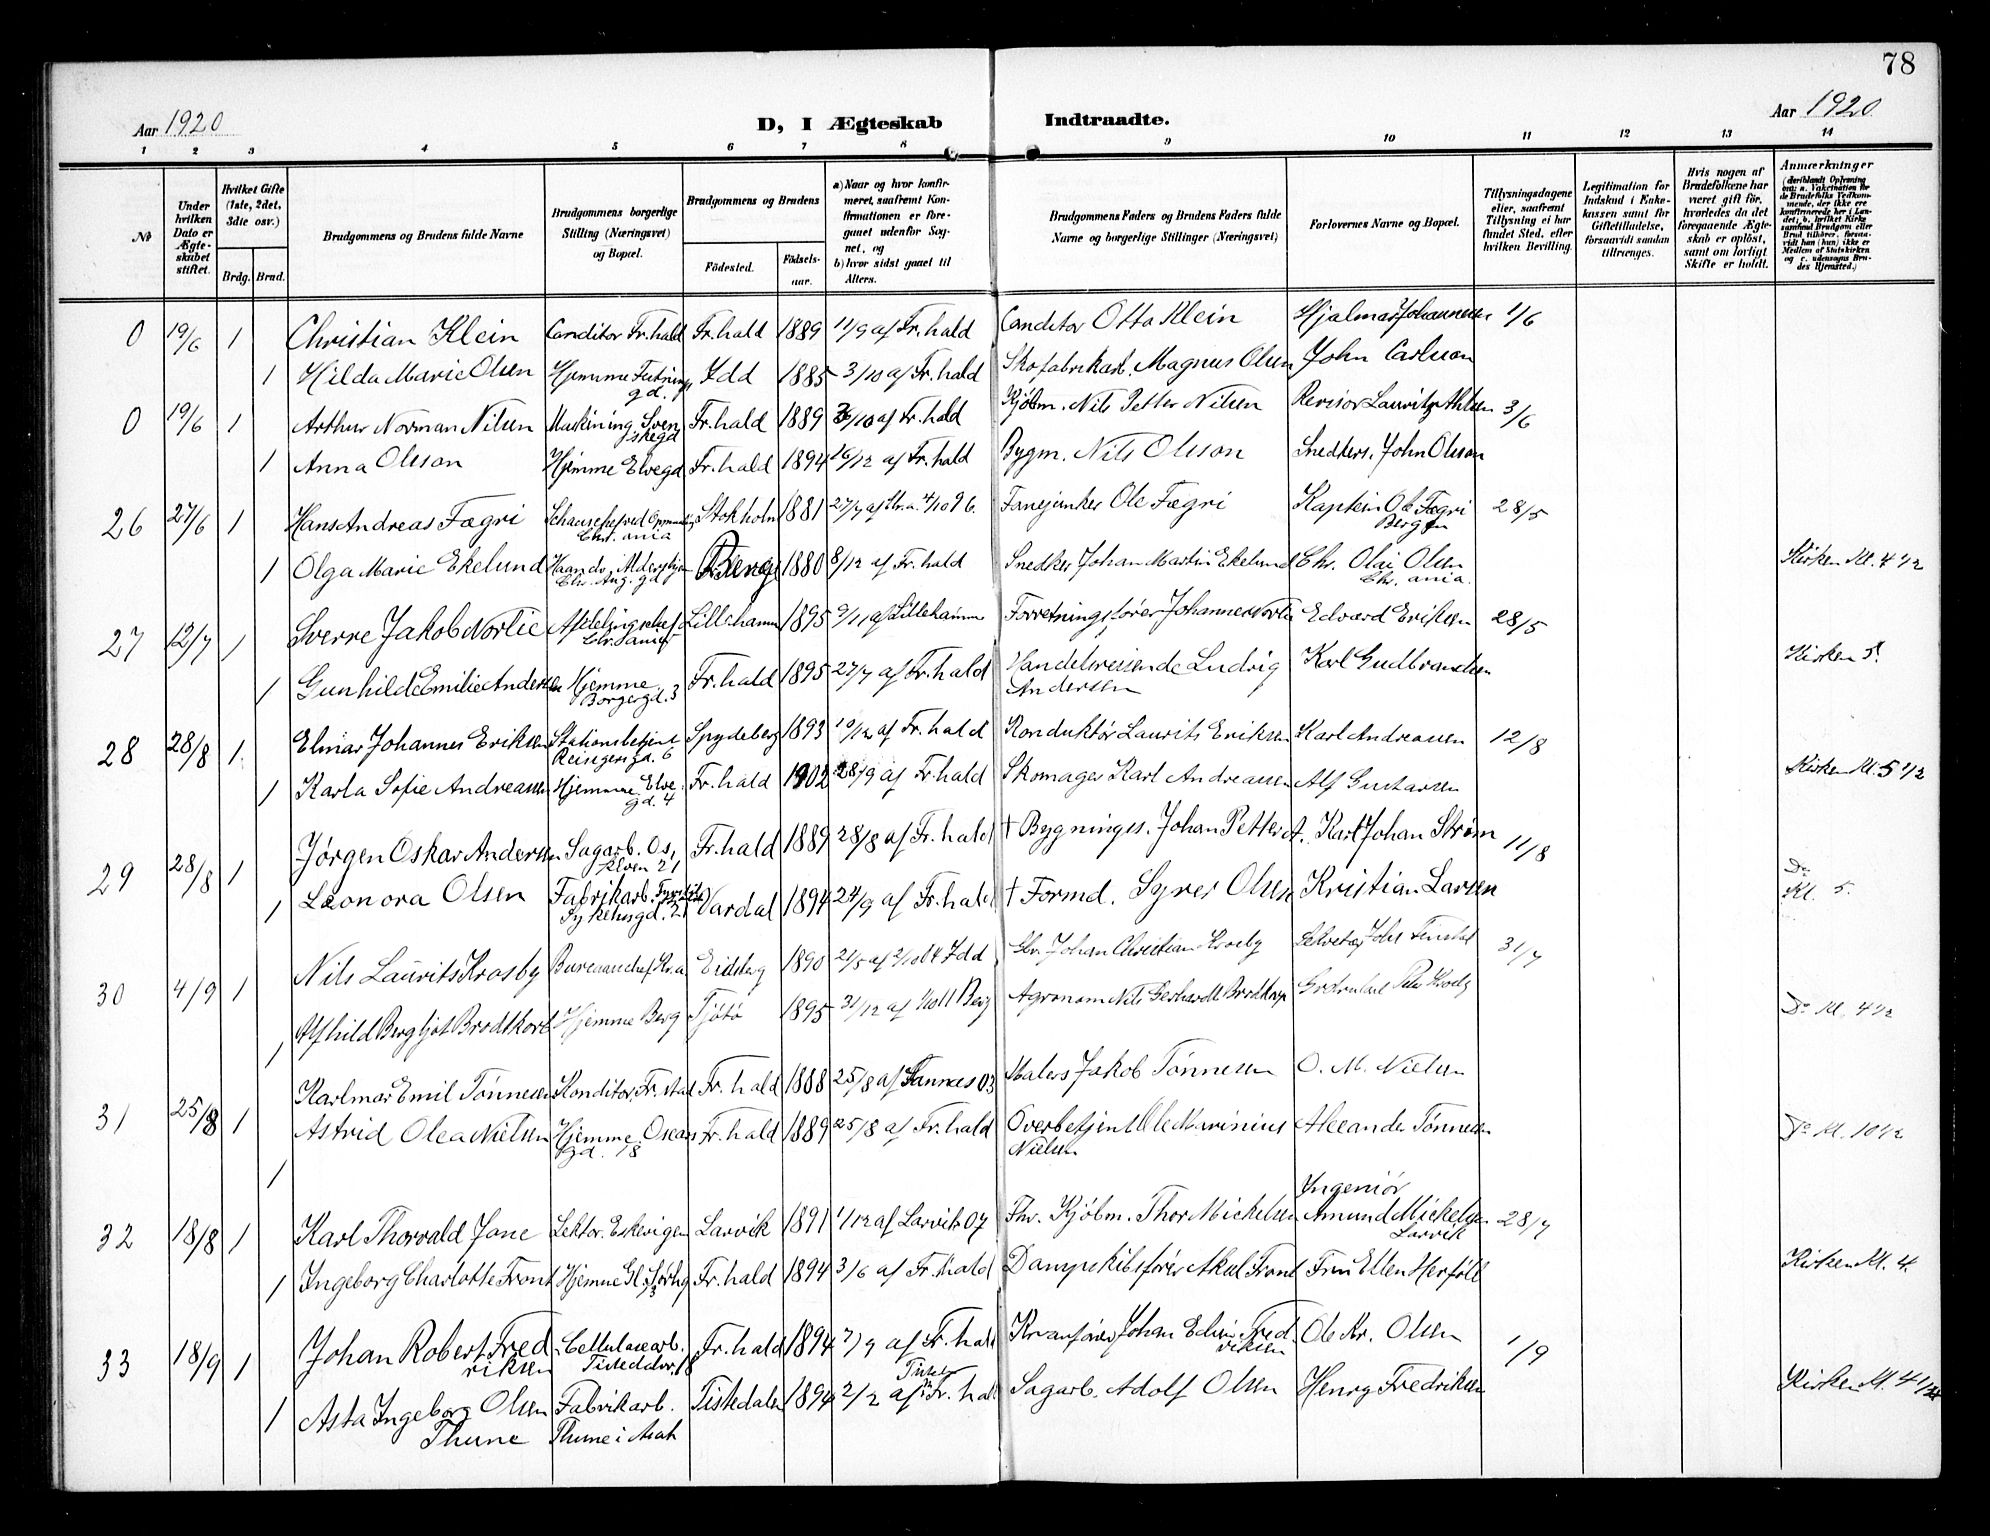 78
Aar 1920
D, I Ægteskab Indtraadte.
Aar 1920
1 2 3 4 5 6 7 8 9 10 11 12 13 14
№
Under hvilken Dato er Ægteskabet stiftet.
Hvilket Gifte (1ste, 2det, 3die osv.)
Brdg. Brud.
Brudgommens og Brudens fulde Navne
Brudgommens borgerlige Stilling (Næringsvei) og Bopæl.
Brudgommens og Brudens
Fødested. Fødselsaar.
a) Naar og hvor konfirmeret, saafremt Konfirmationen er foregaaet udenfor Sognet, og
b) hvor sidst gaaet til Alters.
Brudgommens Faders og Brudens Faders fulde Navne og borgerlige Stillinger (Næringsvei)
Forlovernes Navne og Bopæl.
Tillysningsdagene eller, saafremt Tillysning ei har fundet Sted, efter hvilken Bevilling.
Legitimation for Indskud i Enkekassen samt for Giftetilladelse, forsaavidt saadan tiltrænges.
Hvis nogen af Brudefolkene har været gift før, hvorledes da det foregaaende Ægteskab er opløst, samt om lovligt Skifte er holdt.
Anmærkninger
0 19/6 1 Christian Klein Conditor Fr.hald Fr.hald 1889 11/9 af Fr.hald Conditor Otto Klein Hjalmar Johannesen 1/6
1 Hilda Marie Olsen Hjemme gd. Idd 1885 3/10 af Fr.hald Skofabrikarb. Magnus Olsen John Carlson
0 19/6 1 Arthur Norman Nilsen Fr.hald 1889 af Fr.hald Kjøbm. Nils Petter Nilsen Revisor Lauritz 3/6
1 Anna Olsson Hjemme Elvegd Fr.hald 1894 16/12 af Fr.hald Bygm. Nils Olsson Snedkers. John Olsson
26 27/6 1 Hans Andreas Fægri Chr.ania Stokholm 1881 27/7 Fanejunker Ole Fægri Kaptein Ole Fægri Bergen 28/5
1 Olga Marie Ekelund Berg 1880 8/12 af Fr.hald Snedker Johan Martin Ekelund Chr. Olai Olsen Chr.ania. Kirken Kl. 4 1/2
27 12/7 1 Sverre Jakob Norlie Afdelingschef Lillehammer 1895 9/11 af Lillehamme Forretningsfører Johannes Norlie Edvard Eriksen 28/5
1 Gunhild Emilie Andersen Hjemme Borgergd. 3 Fr.hald 1895 27/7 af Fr.hald Handelsreisende Ludvig Andersen Karl Gudbrandsen Kirken 5.
28 28/8 1. Elmar Johannes Eriksen Stationsbetjent 6 Spydeberg 1893 10/12 af Fr.hald Konduktør Laurits Eriksen Karl Andreassen 12/8
1 Karla Sofie Andreassen Hjemme Elvegd. 4 Fr.hald 1902 28/9 af Fr.hald Skomager Karl Andreassen Alf Gustavsen Kirken Kl. 5 1/2
29 28/8 1 Jørgen Oskar Andersen Sagarb. Os, Elven 21 Fr.hald 1889 28/8 af Fr.hald † Bygninges. Johan Petter A. Karl Johan Strøm 11/8
1 Leonora Olsen Fabrikarb. Sykehusgd. Vardal 1894 24/9 af Fr.hald † Formd. Syver Olsen Kristian Larsen Do Kl. 5.
30 4/9 1 Nils Laurits Krosby Bureauchef Kr.a Eidsberg 1890 21/5 af Idd Gbr. Johan Christian Krosby Sekretær 31/7
1 Alfhild Bergljot Brodtkorb Hjemme Berg Tjøtø 1895 31/12 af Berg Agronom Nils Gerhardt Brodtkorb Do Kl. 4 1/2
31 25/8 1 Karlmar Emil Tønnesen Konditor, Fr.stad Fr.hald 1888 25/8 af 03 Malers Jakob Tønnesen O. M. Nielsen
1 Astrid Olea Nielsen Hjemme Oscarsgd. 18 Fr.hald 1889 25/8 af Fr.hald Overbetjent Ole Marinius Nielsen Alexander Tønnesen Do Kl. 10 1/2
32 18/8 1 Karl Thorvald Jane Lektor. Larvik 1891 1/12 af Larvik 07 Fhv. Kjøbm. Thor Mickelsen Ingeniør Amund Mickelsen Larvik 28/7
1 Ingeborg Charlotte Front Hjemme Fr.hald 1894 3/6 af Fr.hald Dampskibsfører Aksel Front Fru Ellen Herføll Kirken Kl. 4.
33 18/9 1 Johan Robert Fredriksen Cellulosearb. Tistedalen 18 Fr.hald 1894 7/9 af Fr.hald Kranfører Johan Edvin Fredriksen Ole Kr. Olsen 1/9
1 Asta Ingeborg Olsen Thune Fabrikarb. Thune i Asak Tistedalen 1894 2/2 af Fr.hald Sagarb. Adolf Olsen Henry Fredriksen Kirken Kl. 4 1/2